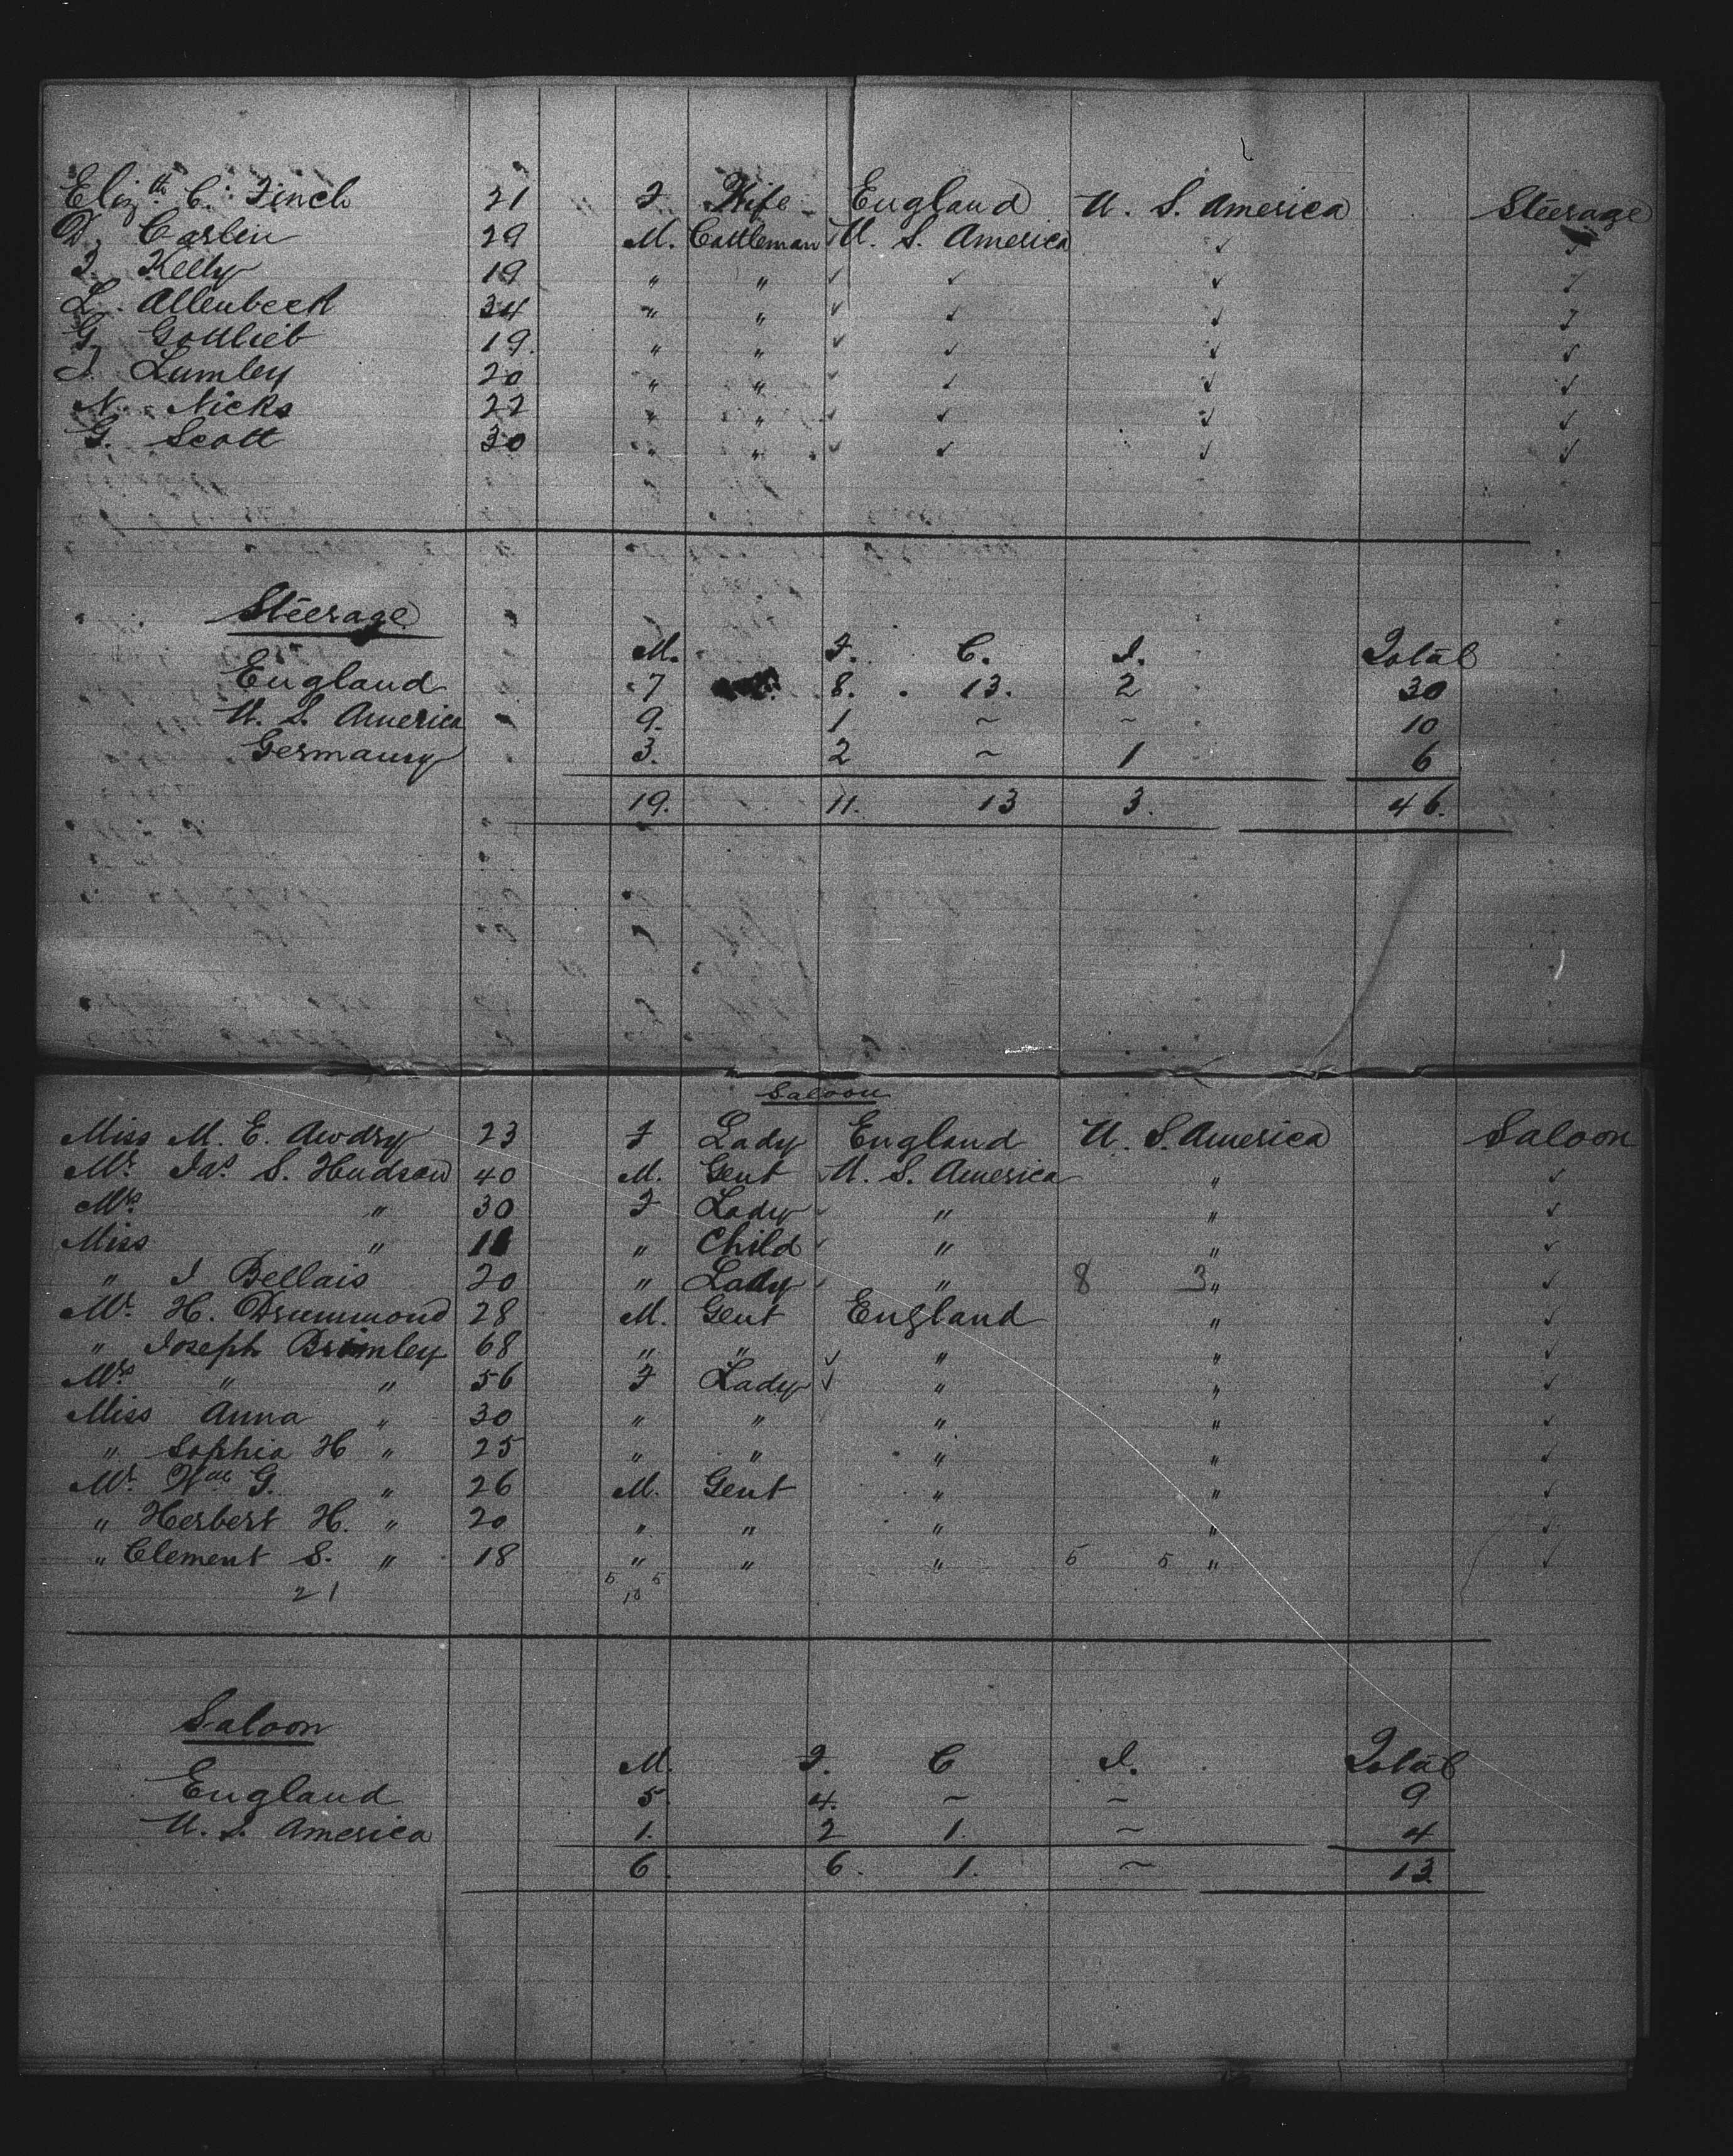 Eliz.th C. Finch 21 F Wife England U. S. America Steerage
D. Carlin 29 M. Cattleman U. S. America ✓ ✓
J. Kelly 19 " " ✓ ✓ ✓
L. Allenbeck 34 " " ✓ ✓ ✓
G. Gottlieb 19. " " ✓ ✓ ✓ ✓
J. Lumley 20 " " ✓ ✓ ✓
N. Nicks 22 " " ✓ ✓ ✓ ✓
G. Scott 30 " " ✓ ✓ ✓ ✓
Steerage
M. F. C. I. Total
England 7 8. 13. 2 30
U. S. America 9. 1 ~ ~ 10
Germany 3. 2 ~ 1 6
19. 11. 13 3. 46.
Saloon
Miss M. E. Awdry 23 F Lady England U. S. America Saloon
Mr. Jas. S. Hudson 40 M. Gent U. S. America " ✓
Mrs. " 30 F Lady " " ✓
Miss " 11 " Child " " ✓
" J Bellais 20 " Lady " 8 3 " ✓
Mr. H. Drummond 28 M. Gent England " ✓
" Joseph Brimley 68 " " ✓ " " ✓
Mrs. " " 56 F Lady ✓ " " ✓
Miss Anna " 30 " " " " ✓
" Sophia H " 25 " " " " ✓
Mr. Wm G. " 26 M. Gent " " ✓
" Herbert H. " 20 " " " " ✓
" Clement S. " 18 " " " 5 5 " ✓
21 5 5
10
Saloon
M. F. C I. Total
England 5. 4. ~ ~ 9
U. S. America 1. 2 1. ~ 4
6. 6. 1. ~ 13.